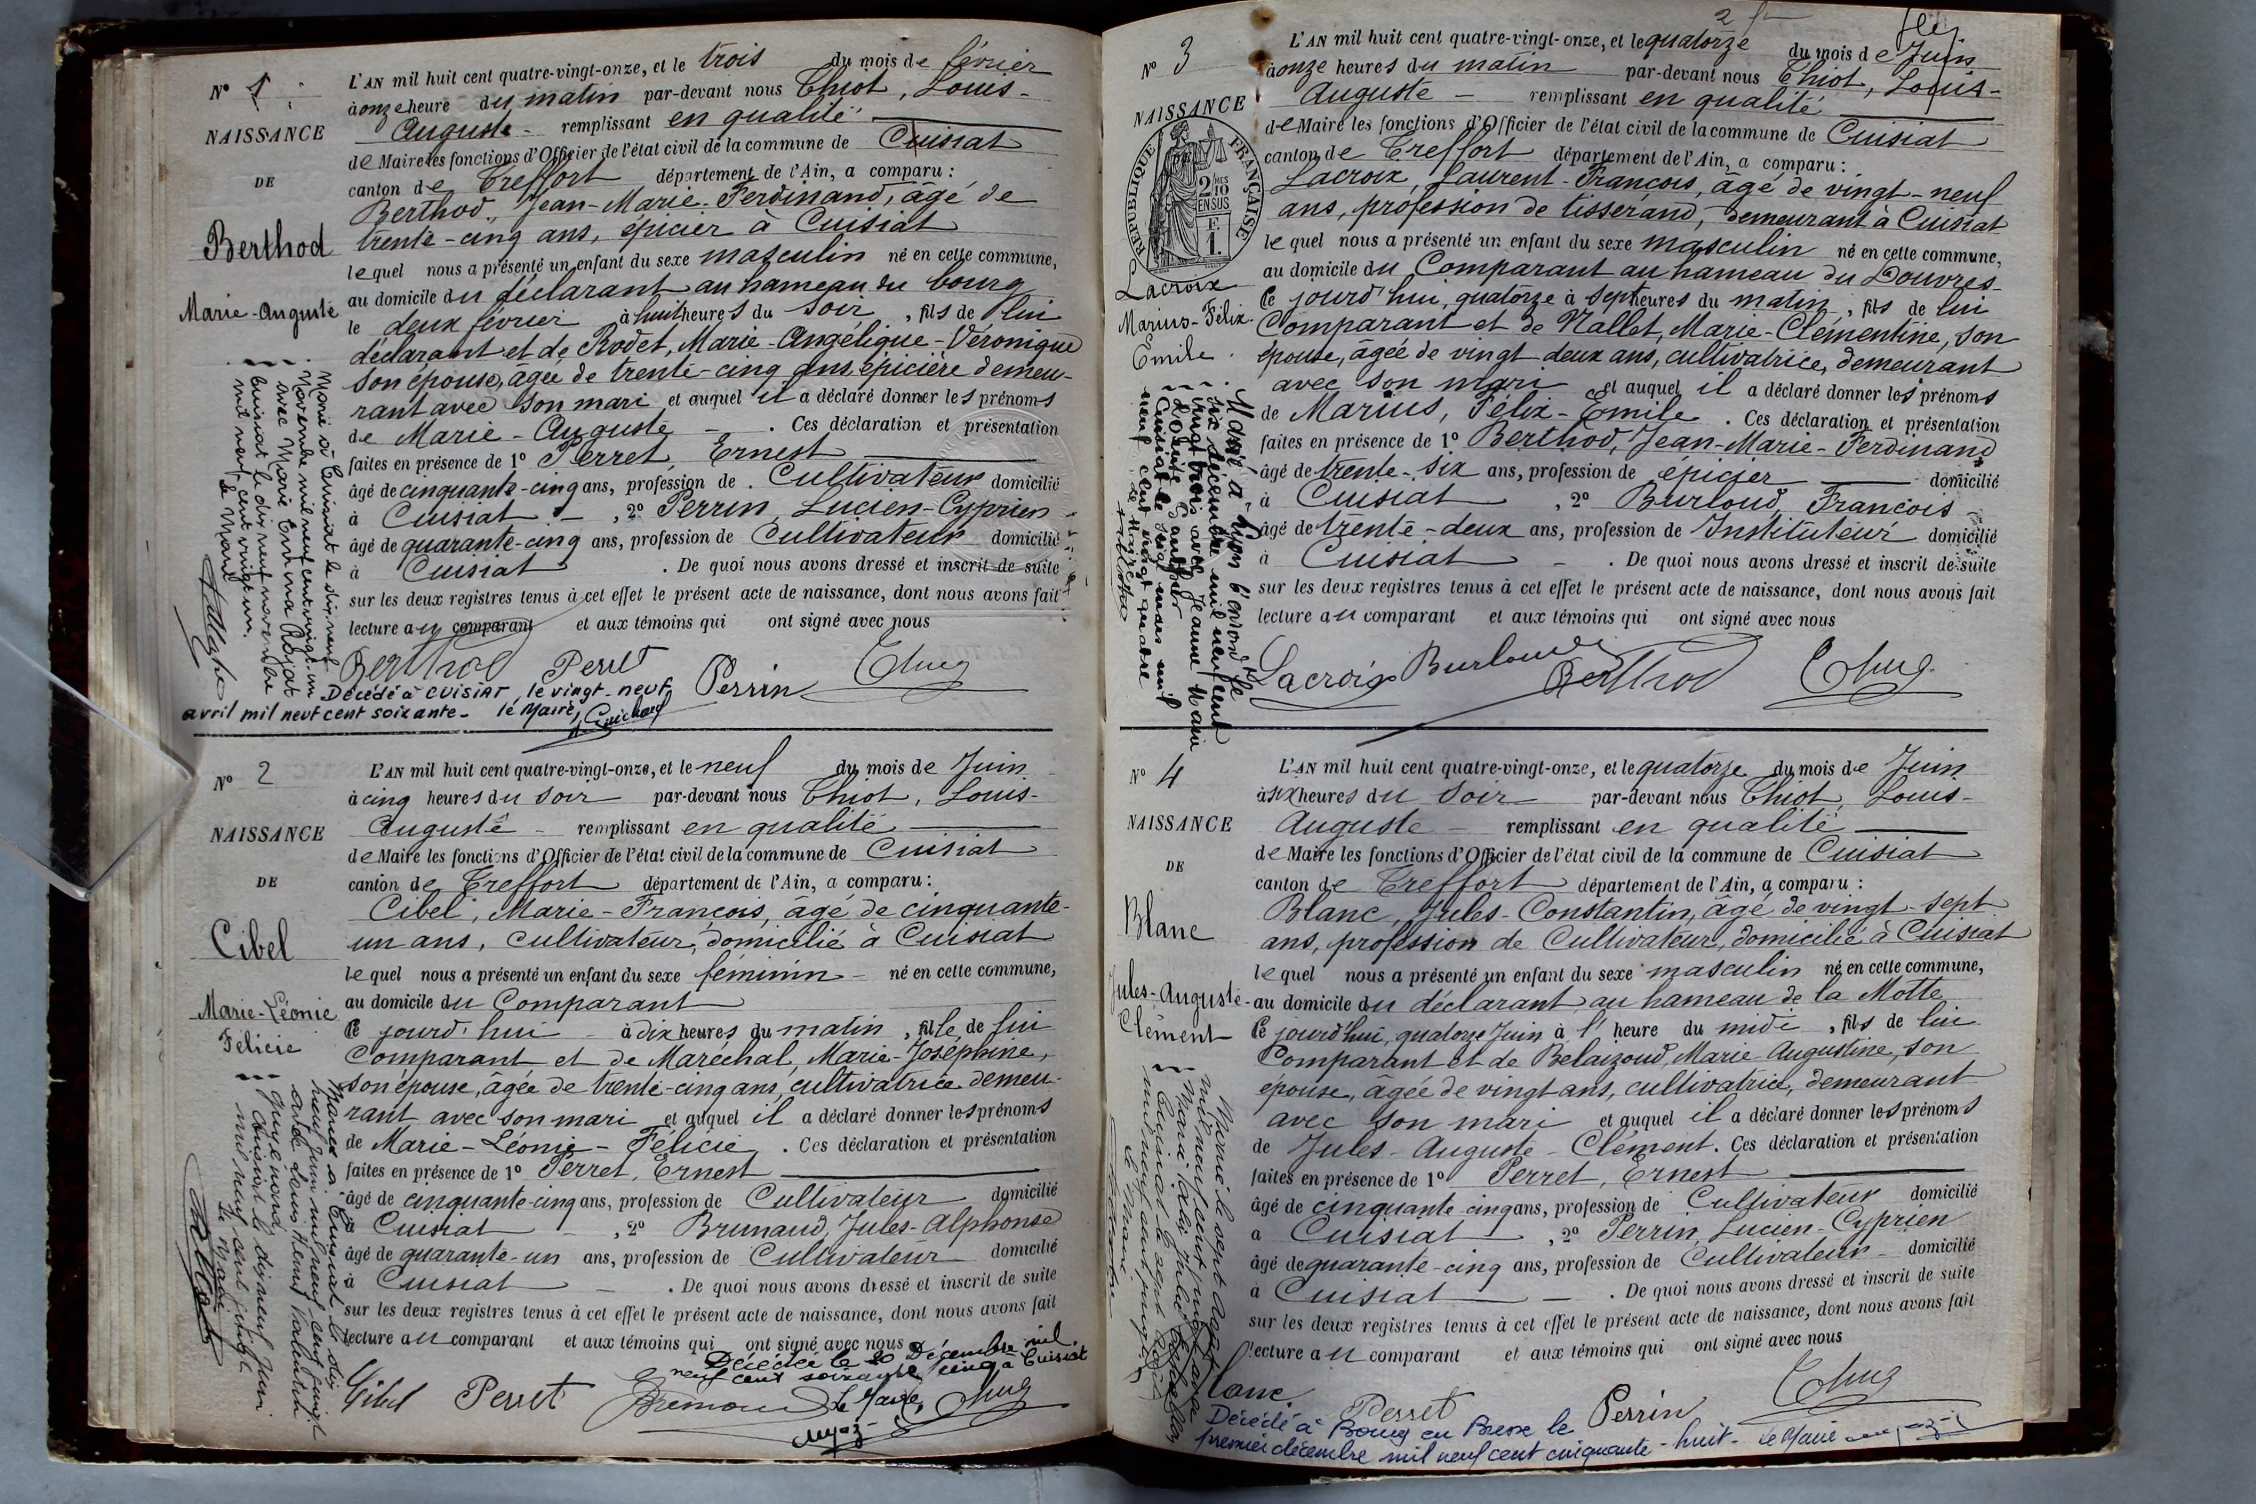 N° 1
NAISSANCE
DE
Berthod
Marie-Auguste
L'AN mil huit cent quatre-vingt-onze, et le trois du mois de février
à onze heure du matin par-devant nous Thiot, Louis-
Auguste - remplissant en qualité
de Maire les fonctions d'Officier de l'état civil de la commune de Cuisiat
canton de Treffort département de l'Ain, a comparu :
Berthod, Jean-Marie-Ferdinand, âgé de
trente-cinq ans, épicier à Cuisiat
lequel nous a présenté un enfant du sexe masculin né en cette commune,
au domicile du déclarant au hameau du bourg
le deux février à huit heures du soir, fils de lui
déclarant et de Rodet, Marie-Angélique-Véronique
son épouse, âgée de trente-cinq ans, épicière demeu-
rant avec son mari et auquel il a déclaré donner les prénoms
de Marie-Auguste - . Ces déclaration et présentation
faites en présence de 1° Perret, Ernest
âgé de cinquante-cinq ans, profession de Cultivateur domicilié
à Cuisiat - , 2° Perrin, Lucien-Cyprien
âgé de quarante-cinq ans, profession de Cultivateur domicilié
à Cuisiat . De quoi nous avons dressé et inscrit de suite
sur les deux registres tenus à cet effet le présent acte de naissance, dont nous avons fait
lecture au comparant et aux témoins qui ont signé avec nous
Berthod Perret Perrin
Marié à Cuisiat le dix neuf
Novembre mil neuf cent vingt-un
avec Marie Emma Rojat
Cuisiat le dix neuf novembre
mil neuf cent vingt un.
Le Maire
Décédé à CUISIAT, le vingt-neuf
avril mil neuf cent soixante - le Maire,
N° 2
NAISSANCE
DE
Cibel
Marie-Léonie
Félicie
L'AN mil huit cent quatre-vingt-onze, et le neuf du mois de Juin
à cinq heures du soir par-devant nous Thiot, Louis-
Auguste - remplissant en qualité
de Maire les fonctions d'Officier de l'état civil de la commune de Cuisiat
canton de Treffort département de l'Ain, a comparu :
Cibel, Marie-François, âgé de cinquante-
un ans, cultivateur, domicilié à Cuisiat
lequel nous a présenté un enfant du sexe féminin - né en cette commune,
au domicile du Comparant
ce jourd'hui à dix heures du matin, fille de lui
Comparant et de Maréchal, Marie-Joséphine,
son épouse, âgée de trente-cinq ans, cultivatrice demeu-
rant avec son mari et auquel il a déclaré donner les prénoms
de Marie-Léonie-Félicie . Ces déclaration et présentation
faites en présence de 1° Perret, Ernest
âgé de cinquante-cinq ans, profession de Cultivateur domicilié
à Cuisiat - , 2° Brunaud, Jules-Alphonse
âgé de quarante-un ans, profession de Cultivateur domicilié
à Cuisiat - . De quoi nous avons dressé et inscrit de suite
sur les deux registres tenus à cet effet le présent acte de naissance, dont nous avons fait
lecture au comparant et aux témoins qui ont signé avec nous
Décédée le 20 Décembre mil
neuf cent soixante cinq à Cuisiat
Le Maire,
Cibel Perret
Cuisiat le dix neuf Juin
mil neuf cent vingt
Le Maire
N° 3
NAISSANCE
RÉPUBLIQUE FRANÇAISE
2/10
EN SUS
Lacroix
Marius-Félix-
Emile
L'AN mil huit cent quatre-vingt-onze, et le quatorze du mois de Juin
à onze heures du matin par-devant nous Thiot, Louis-
Auguste - remplissant en qualité
de Maire les fonctions d'Officier de l'état civil de la commune de Cuisiat
canton de Treffort département de l'Ain, a comparu :
Lacroix, Laurent-François, âgé de vingt-neuf
ans, profession de tisserand, demeurant à Cuisiat
lequel nous a présenté un enfant du sexe masculin né en cette commune,
au domicile du Comparant au hameau du Douvres
ce jourd'hui, quatorze à sept heures du matin, fils de lui
Comparant et de Nallet, Marie-Clémentine, son
épouse, âgée de vingt deux ans, cultivatrice, demeurant
avec son mari et auquel il a déclaré donner les prénoms
de Marius, Félix-Emile . Ces déclaration et présentation
faites en présence de 1° Berthod, Jean-Marie-Ferdinand
âgé de trente-six ans, profession de épicier domicilié
à Cuisiat , 2° Burloud, François -
âgé de trente-deux ans, profession de Instituteur domicilié
à Cuisiat - . De quoi nous avons dressé et inscrit de suite
sur les deux registres tenus à cet effet le présent acte de naissance, dont nous avons fait
lecture au comparant et aux témoins qui ont signé avec nous
Lacroix Burloud Berthod
Marié à Lyon
six décembre mil neuf cent
vingt trois avec Jeanne Marie
Louise
Cuisiat le six mars mil
neuf cent vingt quatre
Le Maire
N° 4
NAISSANCE
DE
Blanc
Jules-Auguste-
Clément
L'AN mil huit cent quatre-vingt-onze, et le quatorze du mois de Juin
à six heures du soir par-devant nous Thiot, Louis-
Auguste - remplissant en qualité
de Maire les fonctions d'Officier de l'état civil de la commune de Cuisiat
canton de Treffort département de l'Ain, a comparu :
Blanc, Jules-Constantin, âgé de vingt-sept
ans, profession de Cultivateur, domicilié à Cuisiat
lequel nous a présenté un enfant du sexe masculin né en cette commune,
au domicile du déclarant au hameau de la Motte
ce jourd'hui, quatorze Juin à l'heure du midi, fils de lui
Comparant et de Belaizoud, Marie Augustine, son
épouse, âgée de vingt ans, cultivatrice, demeurant
avec son mari et auquel il a déclaré donner les prénoms
de Jules-Auguste-Clément . Ces déclaration et présentation
faites en présence de 1° Perret, Ernest
âgé de cinquante-cinq ans, profession de Cultivateur domicilié
à Cuisiat , 2° Perrin, Lucien-Cyprien
âgé de quarante-cinq ans, profession de Cultivateur domicilié
à Cuisiat - . De quoi nous avons dressé et inscrit de suite
sur les deux registres tenus à cet effet le présent acte de naissance, dont nous avons fait
lecture au comparant et aux témoins qui ont signé avec nous
Blanc Perret Perrin
Décédé à Bourg en Bresse le
premier décembre mil neuf cent cinquante-huit - Le Maire